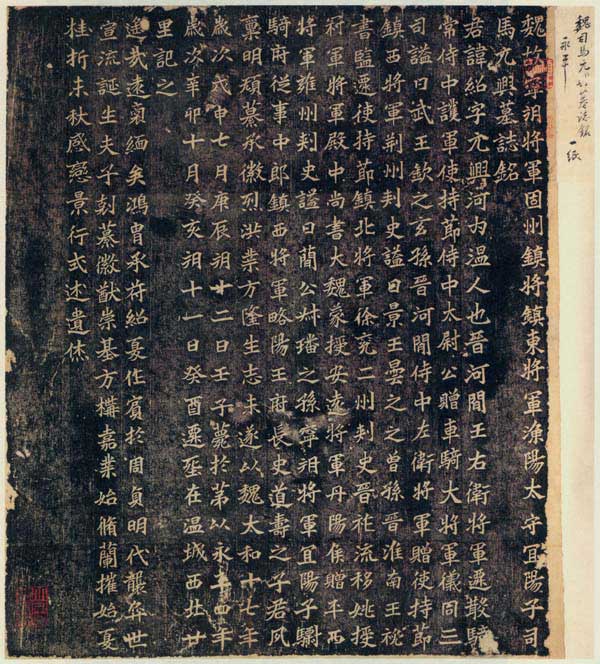 魏司馬元興墓誌銘 一紙
永平
魏故寧朔將軍固州鎮將鎮東將軍漁陽太守宜陽子司
馬元興墓誌銘
君諱紹字元興河內溫人也晉河間王右衛將軍遷散騎
常侍中護軍使持節侍中太尉公贈車騎大將軍儀同三
司謚曰武王欽之玄孫晉河間侍中左衛將軍贈使持節
鎮西將軍荊州刺史謚曰景王曇之之曾孫晉淮南王祕
書監遷使持節鎮北將軍徐兗二州刺史晉祚流移姚授
冠軍將軍殿中尚書大魏蒙授安遠將軍丹陽侯贈平西
將軍雍州刺史謚曰簡公叔璠之孫寧朔將軍宜陽子驃
騎府從事中郎鎮西將軍略陽王府長史道壽之子君夙
稟明頎纂承徽烈洪業方隆生志未遂以魏太和十七年
歲次戊申七月庚辰朔廿二日壬子薨於第以永平四年
歲次辛卯十月癸亥朔十一日癸酉遷塋在溫城西北廿
里記之
遙哉遠裔緬矣鴻胄承苻紹夏作賓於周貞明代襲弈世
宣流誕生夫子剋纂徽猷崇基方構嘉業始脩蘭摧始夏
桂折未秋感戀景行式述遺休